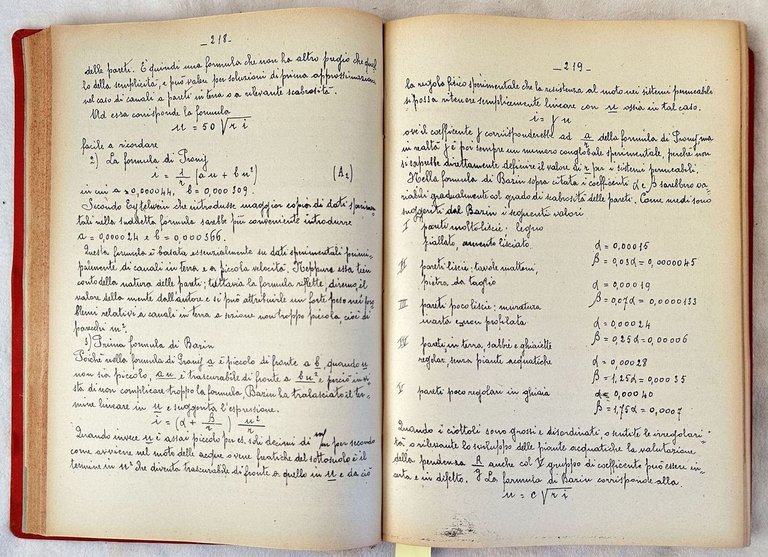 - 218 -
delle pareti. È quindi una formula che non ha altro pregio che quel
lo della semplicità, e può valere per soluzioni di prima approssimazione
nel caso di canali a pareti in terra o a rilevante scabrosità.
Ad essa corrisponde la formula
u = 50 √r i
facile a ricordare
2) La formula di Prony
i = 1/r (a u + b u²) (A₂)
in cui a = 0,000044, b = 0,000309.
Secondo Eytelwein che introdusse maggior copia di dati sperimen
tali nella suddetta formula sarebbe più conveniente introdurre
a = 0,000024 e b = 0,000366.
Questa formula è basata essenzialmente su dati sperimentali princi
palmente di canali in terra e a piccola velocità. Neppure essa tien
conto della natura delle pareti; tuttavia la formula riflette, diremo, il
valore della mente dell'autore e si può attribuirle un forte peso nei pro
blemi relativi a canali in terra a sezione non troppo piccola cioè di
parecchi m².
3) Prima formula di Bazin
Poichè nella formula di Prony a è piccolo di fronte a b, quando u
non sia piccolo, a u è trascurabile di fronte a b u² e perciò in vi
sta di non complicare troppo la formula, Bazin ha tralasciato il ter
mine lineare in u e suggerita l'espressione.
i = (α + β/r) u²/r
Quando invece u è assai piccolo per es. soli decimi di m/m per secondo
come avviene nel moto delle acque sotterranee freatiche del sottosuolo è il
termine in u² che diventa trascurabile di fronte a quello in u e da ciò
- 219 -
la regola fisico sperimentale che la resistenza al moto nei sistemi permeabili
si possa ritenere semplicemente lineare con u ossia in tal caso.
i = f u
ove il coefficente f corrisponderebbe ad a/r della formula di Prony ma
in realtà f è poi sempre un numero conglobale sperimentale, perchè non
si saprebbe direttamente definire il valore di r per i sistemi permeabili.
Nella formula di Bazin sopra citata i coefficenti α e β sarebbero va
riabili gradualmente col grado di scabrosità delle pareti. Come medi sono
suggeriti dal Bazin i seguenti valori
I pareti molto liscie: legno
piallato, cemento lisciato. α = 0,00015
β = 0,03α = 0,0000045
II pareti liscie: tavole mattoni,
pietra da taglio α = 0,00019
β = 0,07α = 0,0000133
III pareti poco liscie: muratura
α = 0,00024
β = 0,25α = 0,00006
IV pareti in terra, sabbie e ghiaiette
regolari, senza piante acquatiche α = 0,00028
β = 1,25α = 0,00035
V pareti poco regolari in ghiaia α = 0,00040
β = 1,75α = 0,0007
Quando i ciottoli sono grossi e disordinati o sentite le irregolari
tà o rilevante lo sviluppo delle piante acquatiche la valutazione
della pendenza R anche col V gruppo di coefficente può essere in
certa e in difetto. La formula di Bazin corrisponde alla.
u = c √r i